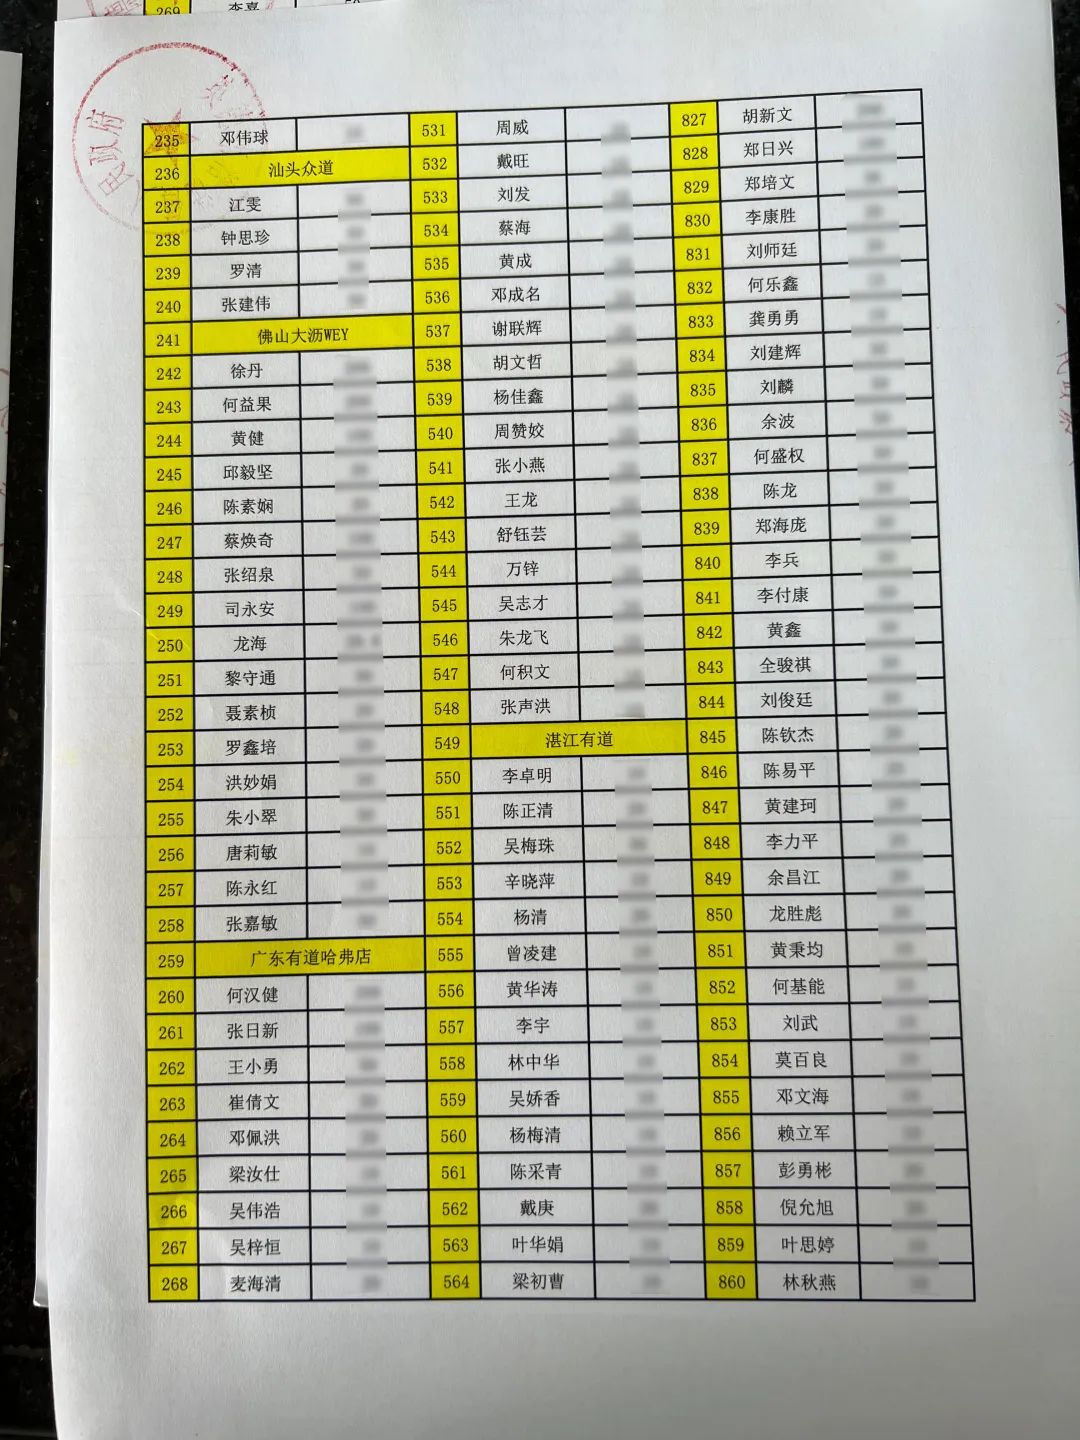 269 李嘉
民政府
235 邓伟球 531 周威 827 胡新文
236 汕头众道 532 戴旺 828 郑日兴
237 江雯 533 刘发 829 郑培文
238 钟思珍 534 蔡海 830 李康胜
239 罗清 535 黄成 831 刘师廷
240 张建伟 536 邓成名 832 何乐鑫
241 佛山大沥WEY 537 谢联辉 833 龚勇勇
242 徐丹 538 胡文哲 834 刘建辉
243 何益果 539 杨佳鑫 835 刘麟
244 黄健 540 周赞姣 836 余波
245 邱毅坚 541 张小燕 837 何盛权
246 陈素娴 542 王龙 838 陈龙
247 蔡焕奇 543 舒钰芸 839 郑海庞
248 张绍泉 544 万锌 840 李兵
249 司永安 545 吴志才 841 李付康
250 龙海 546 朱龙飞 842 黄鑫
251 黎守通 547 何积文 843 全骏祺
252 聂素桢 548 张声洪 844 刘俊廷
253 罗鑫培 549 湛江有道 845 陈钦杰
254 洪妙娟 550 李卓明 846 陈易平
255 朱小翠 551 陈正清 847 黄建珂
256 唐莉敏 552 吴梅珠 848 李力平
257 陈永红 553 辛晓萍 849 余昌江
258 张嘉敏 554 杨清 850 龙胜彪
259 广东有道哈弗店 555 曾凌建 851 黄秉均
260 何汉健 556 黄华涛 852 何基能
261 张日新 557 李宇 853 刘武
262 王小勇 558 林中华 854 莫百良
263 崔倩文 559 吴娇香 855 邓文海
264 邓佩洪 560 杨梅清 856 赖立军
265 梁汝仕 561 陈采青 857 彭勇彬
266 吴伟浩 562 戴庚 858 倪允旭
267 吴梓恒 563 叶华娟 859 叶思婷
268 麦海清 564 梁初曹 860 林秋燕